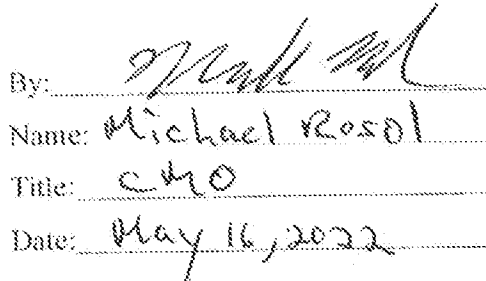 By:
Name: Michael Rosol
Title: CMO
Date: May 16, 2022